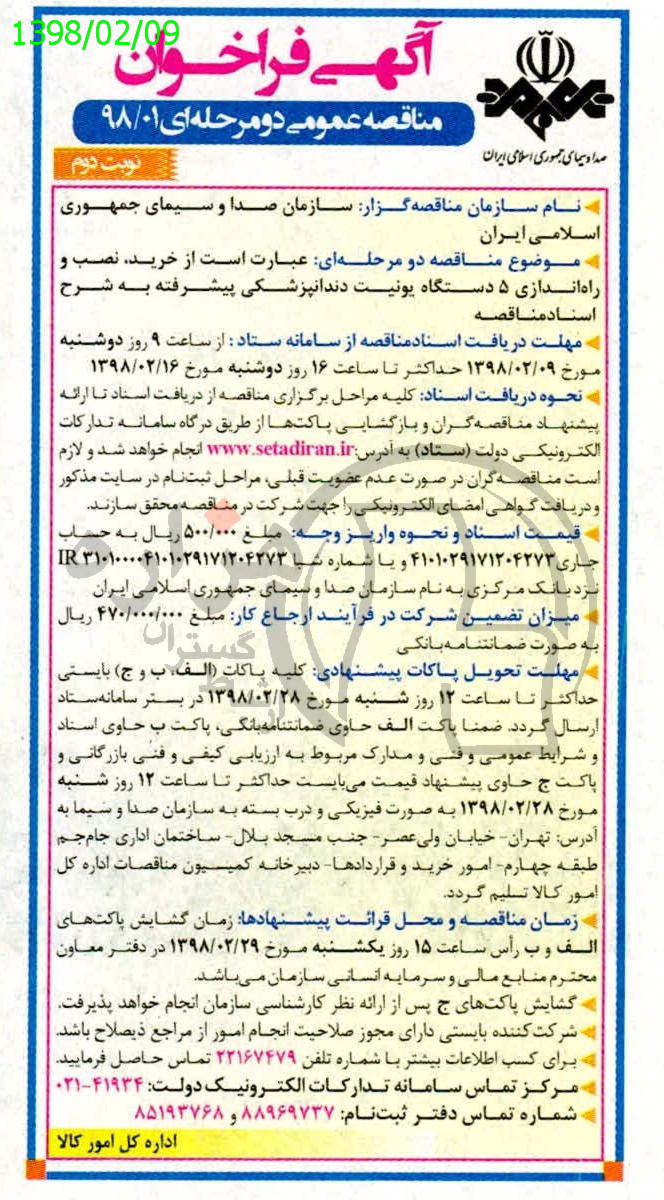 1398/02/09
آگهی فراخوان
مناقصه عمومی دو مرحله‌ای ۹۸/۰۱
صدا و سیمای جمهوری اسلامی ایران
نوبت دوم
نام سازمان مناقصه‌گزار: سازمان صدا و سیمای جمهوری
اسلامی ایران
موضوع مناقصه دو مرحله‌ای: عبارت است از خرید، نصب و
راه‌اندازی ۵ دستگاه یونیت دندانپزشکی پیشرفته به شرح
اسنادمناقصه
مهلت دریافت اسنادمناقصه از سامانه ستاد: از ساعت ۹ روز دوشنبه
مورخ ۱۳۹۸/۰۲/۰۹ حداکثر تا ساعت ۱۶ روز دوشنبه مورخ ۱۳۹۸/۰۲/۱۶
نحوه دریافت اسناد: کلیه مراحل برگزاری مناقصه از دریافت اسناد تا ارائه
پیشنهاد مناقصه‌گران و بازگشایی پاکت‌ها از طریق درگاه سامانه تدارکات
الکترونیکی دولت (ستاد) به آدرس: www.setadiran.ir انجام خواهد شد و لازم
است مناقصه‌گران در صورت عدم عضویت قبلی، مراحل ثبت‌نام در سایت مذکور
و دریافت گواهی امضای الکترونیکی را جهت شرکت در مناقصه محقق سازند.
قیمت اسناد و نحوه واریز وجه: مبلغ ۵۰۰/۰۰۰ ریال به حساب
جاری ۴۱۰۱۰۲۹۱۷۱۲۰۴۲۷۳ و یا شماره شبا IR ۳۱۰۱۰۰۰۰۴۱۰۱۰۲۹۱۷۱۲۰۴۲۷۳
نزد بانک مرکزی به نام سازمان صدا و سیمای جمهوری اسلامی ایران
میزان تضمین شرکت در فرآیند ارجاع کار: مبلغ ۴۷۰/۰۰۰/۰۰۰ ریال
به صورت ضمانتنامه‌بانکی
مهلت تحویل پاکات پیشنهادی: کلیه پاکات (الف، ب و ج) بایستی
حداکثر تا ساعت ۱۲ روز شنبه مورخ ۱۳۹۸/۰۲/۲۸ در بستر سامانه‌ستاد
ارسال گردد. ضمنا پاکت الف حاوی ضمانتنامه‌بانکی، پاکت ب حاوی اسناد
و شرایط عمومی و فنی و مدارک مربوط به ارزیابی کیفی و فنی بازرگانی و
پاکت ج حاوی پیشنهاد قیمت می‌بایست حداکثر تا ساعت ۱۲ روز شنبه
مورخ ۱۳۹۸/۰۲/۲۸ به صورت فیزیکی و درب بسته به سازمان صدا و سیما به
آدرس: تهران- خیابان ولی‌عصر- جنب مسجد بلال- ساختمان اداری جام‌جم
طبقه چهارم- امور خرید و قراردادها- دبیرخانه کمیسیون مناقصات اداره کل
امور کالا تسلیم گردد.
زمان مناقصه و محل قرائت پیشنهادها: زمان گشایش پاکت‌های
الف و ب رأس ساعت ۱۵ روز یکشنبه مورخ ۱۳۹۸/۰۲/۲۹ در دفتر معاون
محترم منابع مالی و سرمایه انسانی سازمان می‌باشد.
گشایش پاکت‌های ج پس از ارائه نظر کارشناسی سازمان انجام خواهد پذیرفت.
شرکت‌کننده بایستی دارای مجوز صلاحیت انجام امور از مراجع ذیصلاح باشد.
برای کسب اطلاعات بیشتر با شماره تلفن ۲۲۱۶۷۴۷۹ تماس حاصل فرمایید.
مرکز تماس سامانه تدارکات الکترونیک دولت: ۴۱۹۳۴-۰۲۱
شماره تماس دفتر ثبت‌نام: ۸۸۹۶۹۷۳۷ و ۸۵۱۹۳۷۶۸
اداره کل امور کالا
هزاره
گستران